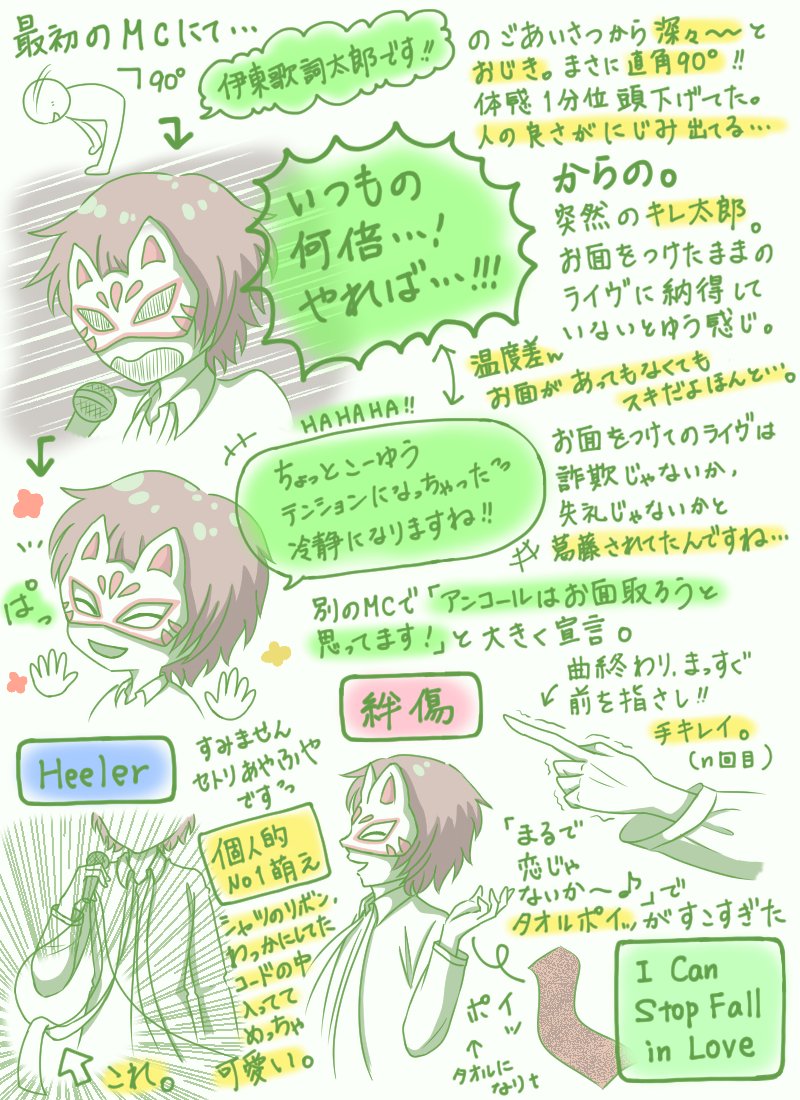 最初のMCにて…
90°
伊東歌詞太郎です!!
のごあいさつから深々〜〜と
おじぎ。まさに直角90°!!
体感1分位頭下げてた。
人の良さがにじみ出てる…
いつもの
何倍…!
やれば…!!!
からの。
突然のキレ太郎。
お面をつけたままの
ライヴに納得して
いないとゆう感じ。
温度差w
お面があってもなくても
スキだよほんと…。
HAHAHA!!
ちょっとこーゆう
テンションになっちゃったっ
冷静になりますね!!
お面をつけてのライヴは
詐欺じゃないか、
失礼じゃないかと
葛藤されてたんですね…
ぱっ。
別のMCで「アンコールはお面取ろうと
思ってます!」と大きく宣言。
絆傷
曲終わり、まっすぐ
前を指さし!!
手キレイ。
(n回目)
Heeler
すみません
セトリあやふや
ですっ
個人的
No1萌え
シャツのリボン、
わっかにしてた
コードの中
入ってて
めっちゃ
可愛い。
これ。
「まるで
恋じゃ
ないか〜♪」で
タオルポイッがすこすぎた
ポイッ
タオルに
なりt
I Can
Stop Fall
in Love